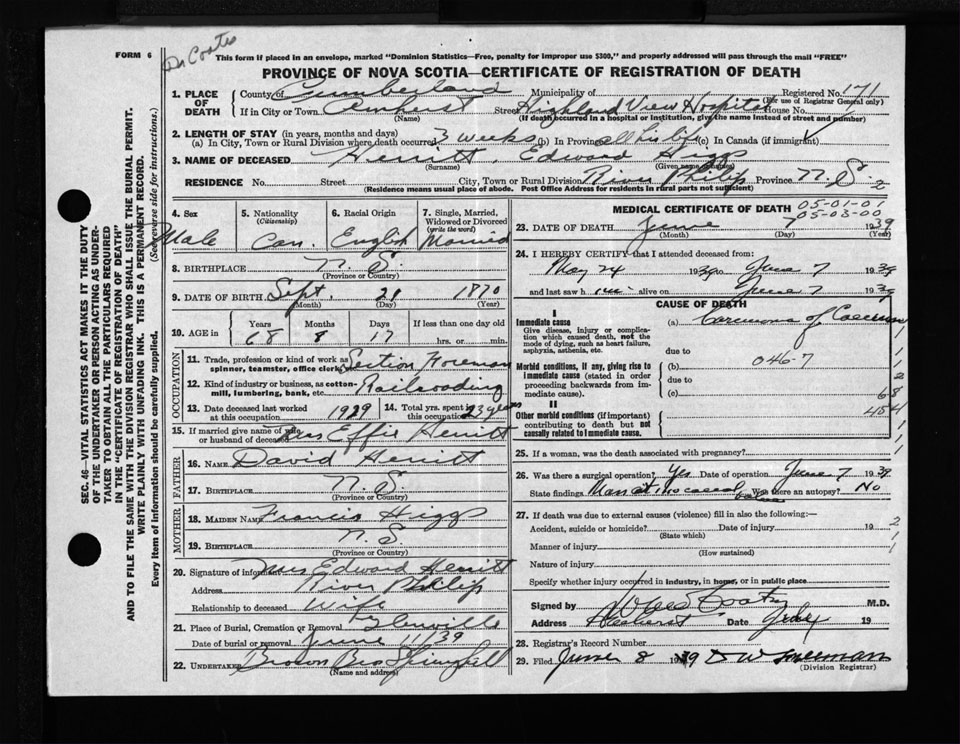 FORM 6
Dr Coates
This form if placed in an envelope, marked "Dominion Statistics—Free, penalty for improper use $300," and properly addressed will pass through the mail "FREE"
PROVINCE OF NOVA SCOTIA—CERTIFICATE OF REGISTRATION OF DEATH
SEC. 46—VITAL STATISTICS ACT MAKES IT THE DUTY
OF THE UNDERTAKER OR PERSON ACTING AS UNDER-
TAKER TO OBTAIN ALL THE PARTICULARS REQUIRED
IN THE "CERTIFICATE OF REGISTRATION OF DEATH"
AND TO FILE THE SAME WITH THE DIVISION REGISTRAR WHO SHALL ISSUE THE BURIAL PERMIT.
WRITE PLAINLY WITH UNFADING INK. THIS IS A PERMANENT RECORD.
Every item of information should be carefully supplied. (See reverse side for instructions.)
1. PLACE OF DEATH
County of Cumberland Municipality of Registered No. 171
(For use of Registrar General only)
If in City or Town Amherst Street Highland View Hospital House No.
(Name) (If death occurred in a hospital or institution, give the name instead of street and number)
2. LENGTH OF STAY (in years, months and days)
(a) In City, Town or Rural Division where death occurred 3 weeks (b) In Province all his life (c) In Canada (if immigrant)
3. NAME OF DECEASED Herritt, Edward Higgs
(Surname) (Given names)
RESIDENCE No. Street City, Town or Rural Division River Philip Province N. S. 2
(Residence means usual place of abode. Post Office Address for residents in rural parts not sufficient)
4. Sex Male
5. Nationality (Citizenship) Can.
6. Racial Origin English
7. Single, Married, Widowed or Divorced (write the word) Married
8. BIRTHPLACE N. S.
(Province or Country)
9. DATE OF BIRTH Sept. 21 1870
(Month) (Day) (Year)
10. AGE in Years 68 Months 8 Days 17 If less than one day old hrs. or min.
OCCUPATION
11. Trade, profession or kind of work as spinner, teamster, office clerk, Section Foreman
12. Kind of industry or business, as cotton-mill, lumbering, bank, etc. Railroading
13. Date deceased last worked at this occupation 1929
14. Total yrs. spent in this occupation 23 years
15. If married give name of wife or husband of deceased Mrs Effie Herritt
FATHER
16. NAME David Herritt
17. BIRTHPLACE N. S.
(Province or Country)
MOTHER
18. MAIDEN NAME Francis Higgs
19. BIRTHPLACE N. S.
(Province or Country)
20. Signature of informant Mrs Edward Herritt
Address River Philip
Relationship to deceased Wife
21. Place of Burial, Cremation or Removal Glenville
Date of burial or removal June 11/39
22. UNDERTAKER Brown Bros Springhill
(Name and address)
MEDICAL CERTIFICATE OF DEATH 05-01-01
05-03-00
23. DATE OF DEATH June 7 1939
(Month) (Day) (Year)
24. I HEREBY CERTIFY that I attended deceased from:
May 24 1939 to June 7 1939
and last saw him alive on June 7 1939
CAUSE OF DEATH
I
Immediate cause
Give disease, injury or complication which caused death, not the mode of dying, such as heart failure, asphyxia, asthenia, etc.
(a) Carcinoma of Caecum
due to
Morbid conditions, if any, giving rise to immediate cause (stated in order proceeding backwards from immediate cause)
(b) 046-7
due to
(c)
II
Other morbid conditions (if important) contributing to death but not causally related to immediate cause.
25. If a woman, was the death associated with pregnancy?
26. Was there a surgical operation? Yes Date of operation June 7 1939
State findings Mass at Was there an autopsy? No
27. If death was due to external causes (violence) fill in also the following:—
Accident, suicide or homicide? Date of injury 19
(State which)
Manner of injury
(How sustained)
Nature of injury
Specify whether injury occurred in industry, in home, or in public place
Signed by Coates M.D.
Address Amherst Date 19
28. Registrar's Record Number
29. Filed June 8 1939 D W Freeman
(Division Registrar)